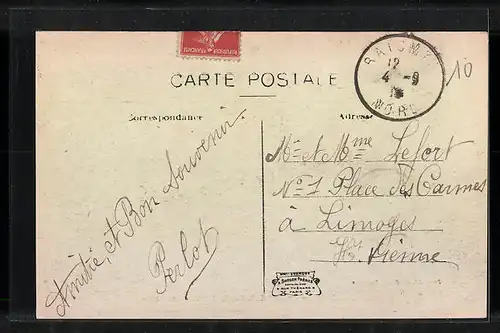 REPUBLIQUE FRANÇAISE
CARTE POSTALE
Correspondance
Adresse
RAISMES
12
4 - 9
NORD
10
Amitié et Bon Souvenir
Perlot
Mr et Mme Lefort
No 1 Place des Carmes
à Limoges
Hte Vienne
PARIS